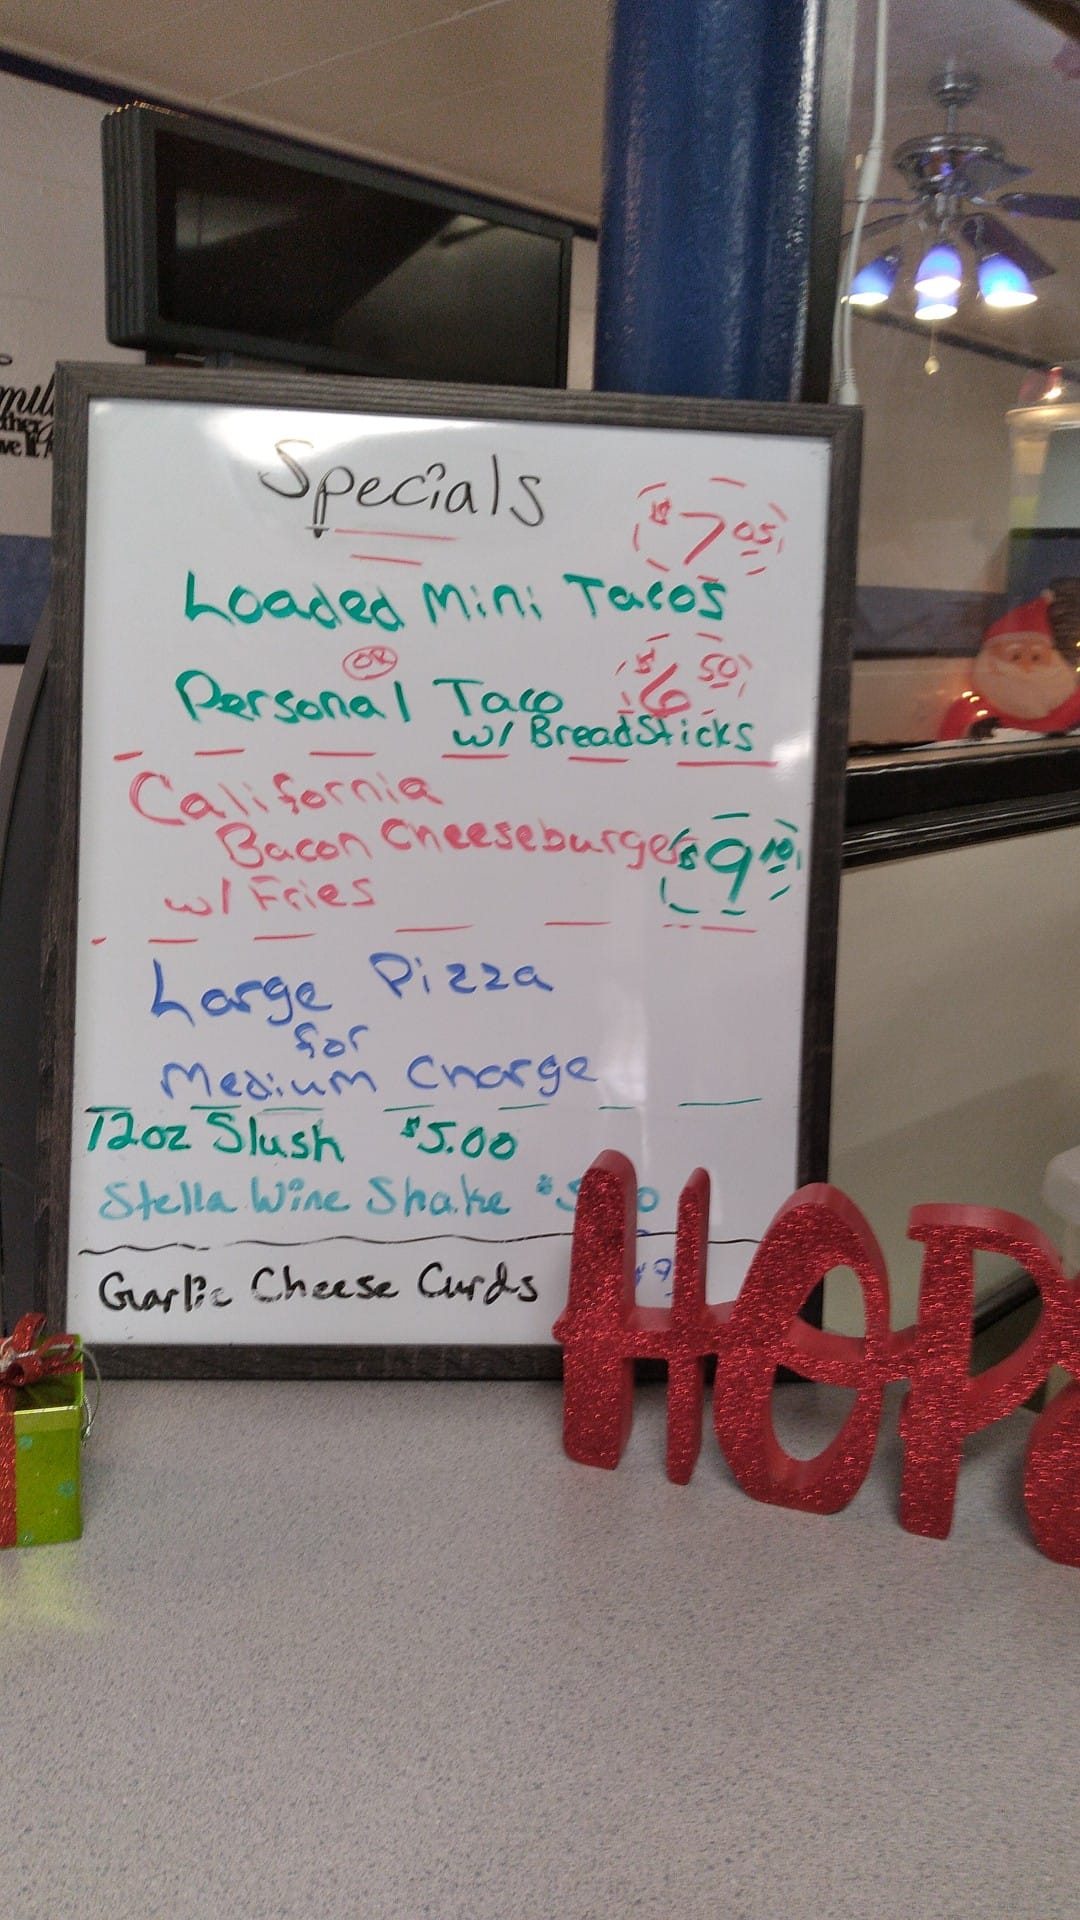 Specials
$7 05
Loaded Mini Tacos
OR
Personal Taco $6 50
w/ BreadSticks
California
Bacon Cheeseburger $9 10
w/ Fries
Large Pizza
for
Medium Charge
12oz Slush $5.00
Stella Wine Shake
Garlic Cheese Curds
HOP